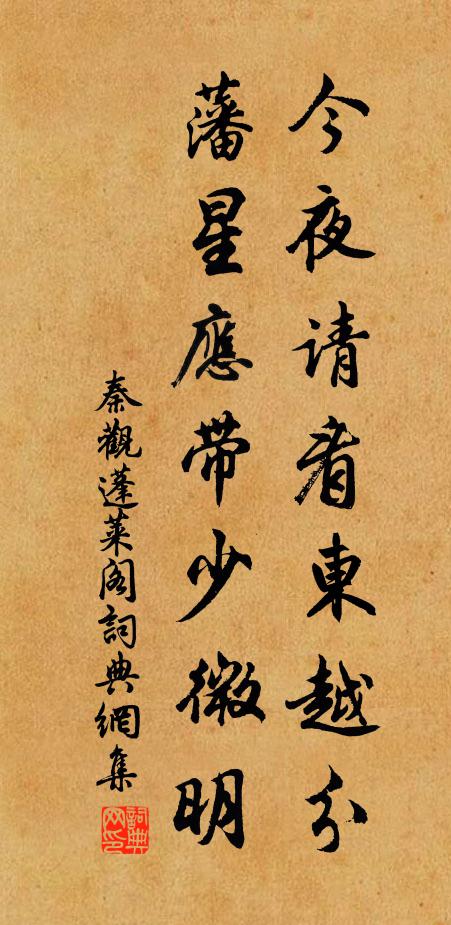 今夜请看東越分
藩星應带少微明
秦觀蓬莱阁詞典網集
詞典网印